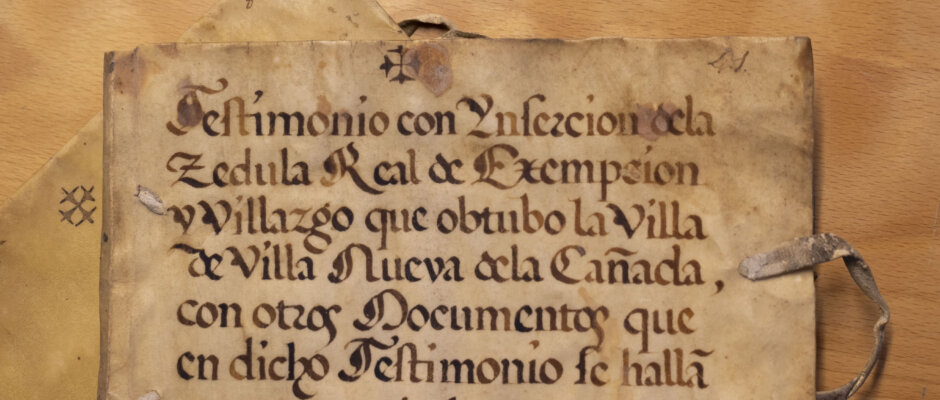 Testimonio con Ynsercion dela
Zedula Real de Exempcion
y Villazgo que obtubo la Villa
de Villa Nueva dela Cañada,
con otros Documentos que
en dicho Testimonio se hallã